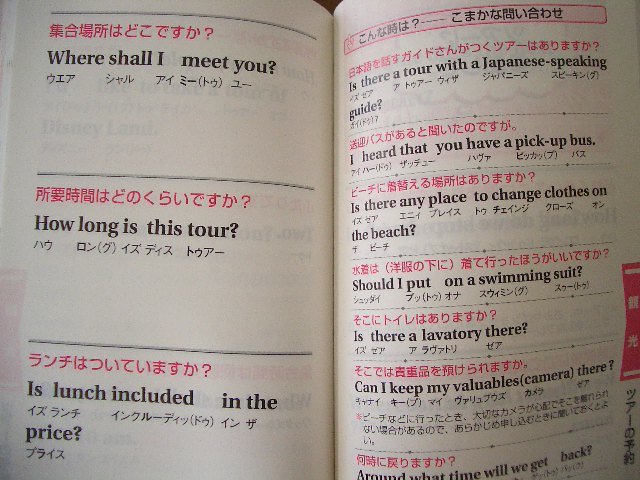 集合場所はどこですか？
Where shall I meet you?
ウエア シャル アイ ミー(トゥ) ユー
所要時間はどのくらいですか？
How long is this tour?
ハウ ロン(グ) イズ ディス トゥアー
ランチはついていますか？
Is lunch included in the
イズ ランチ インクルーディッ(ドゥ) イン ザ
price?
プライス
こんな時は？ こまかな問い合わせ
日本語を話すガイドさんがつくツアーはありますか？
Is there a tour with a Japanese-speaking
イズ ゼア ア トゥアー ウィザ ジャパニーズ スピーキン(グ)
guide?
ガイ(ドゥ)？
送迎バスがあると聞いたのですが。
I heard that you have a pick-up bus.
アイ ハー(ドゥ) ザッチュー ハヴァ ピッカッ(プ) バス
ビーチに着替える場所はありますか？
Is there any place to change clothes on
イズ ゼア エニィ プレイス トゥ チェインジ クローズ オン
the beach?
ザ ビーチ
水着は（洋服の下に）着て行ったほうがいいですか？
Should I put on a swimming suit?
シュッダイ プッ(トゥ) オナ スウィミン(グ) スゥー(トゥ)
そこにトイレはありますか？
Is there a lavatory there?
イズ ゼア ア ラヴァトリ ゼア
そこでは貴重品を預けられますか。
Can I keep my valuables(camera) there?
キャナイ キー(プ) マイ ヴァリュブウズ カメラ ゼア
※ビーチなどに行ったとき、大切なカメラが心配でそこを離れられ
ない場合があるので、あらかじめ申し込むときに聞いておくとよ
い。
何時に戻りますか？
Around what time will we get back?
観光
ツアーの予約